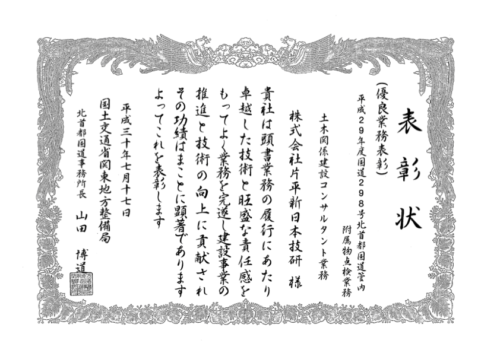 表彰状
(優良業務表彰)
平成29年度国道298号北首都国道管内
附属物点検業務
土木関係建設コンサルタント業務
株式会社片平新日本技研 様
貴社は頭書業務の履行にあたり
卓越した技術と旺盛な責任感を
もってよく業務を完遂し建設事業の
推進と技術の向上に貢献され
その功績はまことに顕著であります
よってこれを表彰します
平成三十年七月十七日
国土交通省関東地方整備局
北首都国道事務所長 山田 博道